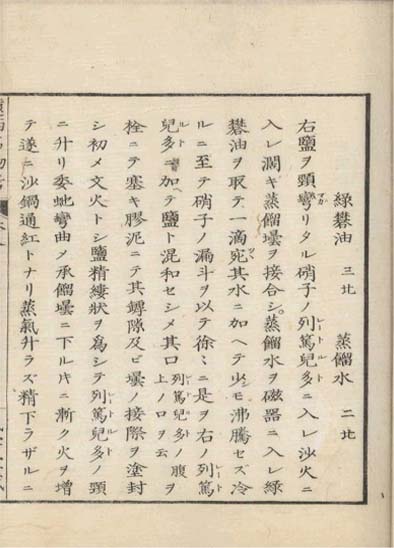 緑礬油 三比 蒸餾水 二比
右鹽ヲ頸彎リタル硝子ノ列篤兒多ニ入レ沙火ニ
入レ濶キ蒸餾壜ヲ接合シ。蒸餾水ヲ磁器ニ入レ緑
礬油ヲ取テ一滴究其水ニ加ヘテ少シモ沸騰セズ冷
ルニ至テ硝子ノ漏斗ヲ以テ徐〻ニ是ヲ右ノ列篤
兒多ニ加テ鹽ト混和セシメ其口列篤兒多ノ腹ヲ上ノロヲ云
栓ニテ塞キ膠泥ニテ其罅隙及ビ壜ノ接際ヲ塗封
シ初メ文火トシ鹽精縷状ヲ爲シテ列篤兒多ノ頸
ニ升リ委虵彎曲メ承餾壜ニ下ル片ニ漸ク火ヲ増
テ遂ニ沙鍋通紅トナリ蒸氣升ラズ精下ラザルニ